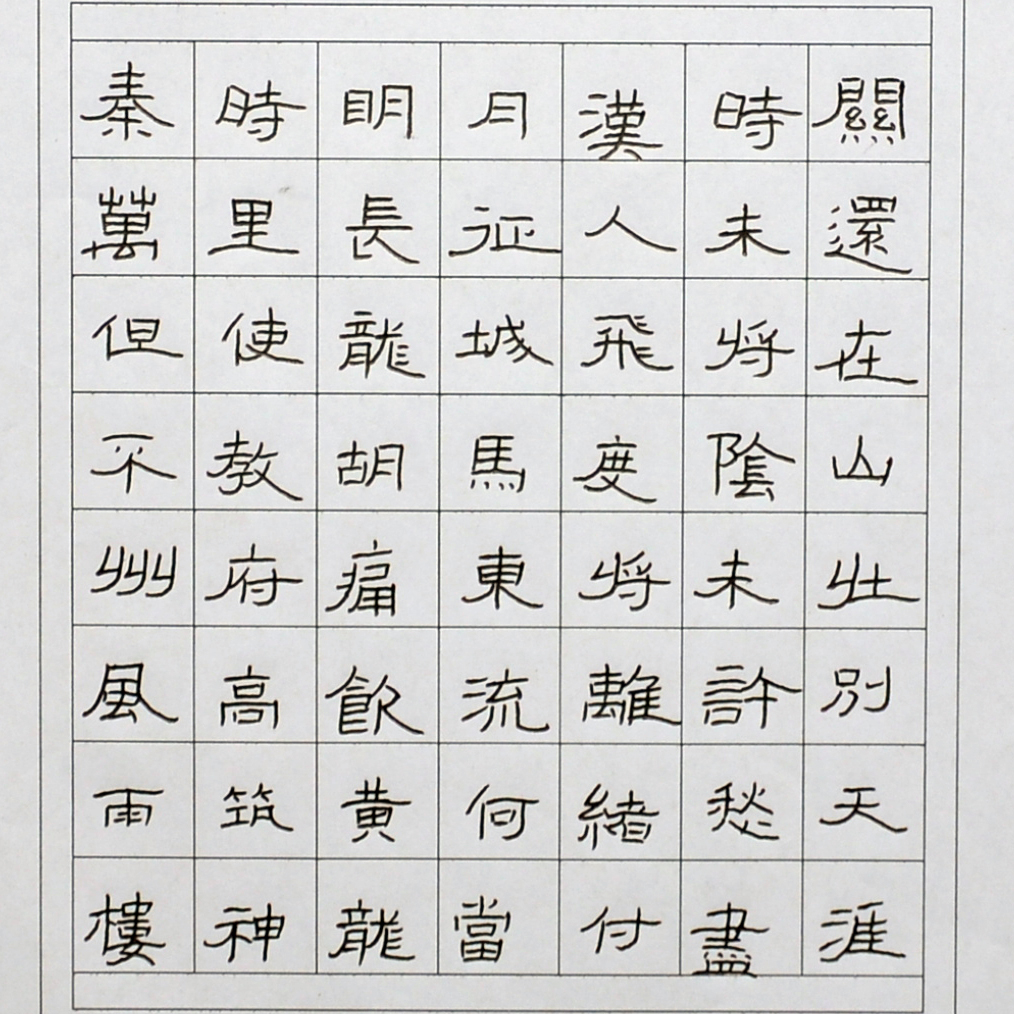 秦時明月漢時關
萬里長征人未還
但使龍城飛將在
不教胡馬度陰山
州府痛東將未壯
風高飲流離許別
雨筑黃何緒愁天
樓神龍當付盡涯